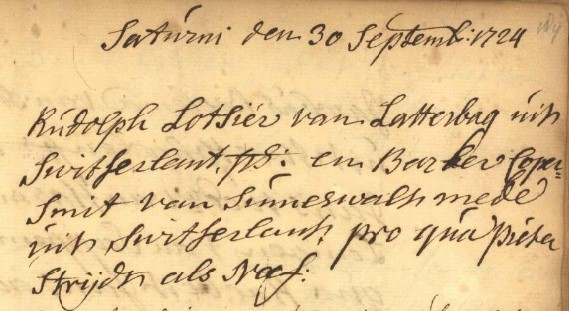 Saturni den 30 Septemb: 1724
Rudolph Lotsier van Latterbag uijt
Switserlant, ps: en Barber Coper=
Smit van Sinneswalt mede
uijt Switserlant, pro qua Pieter
Strijdt als Naef: